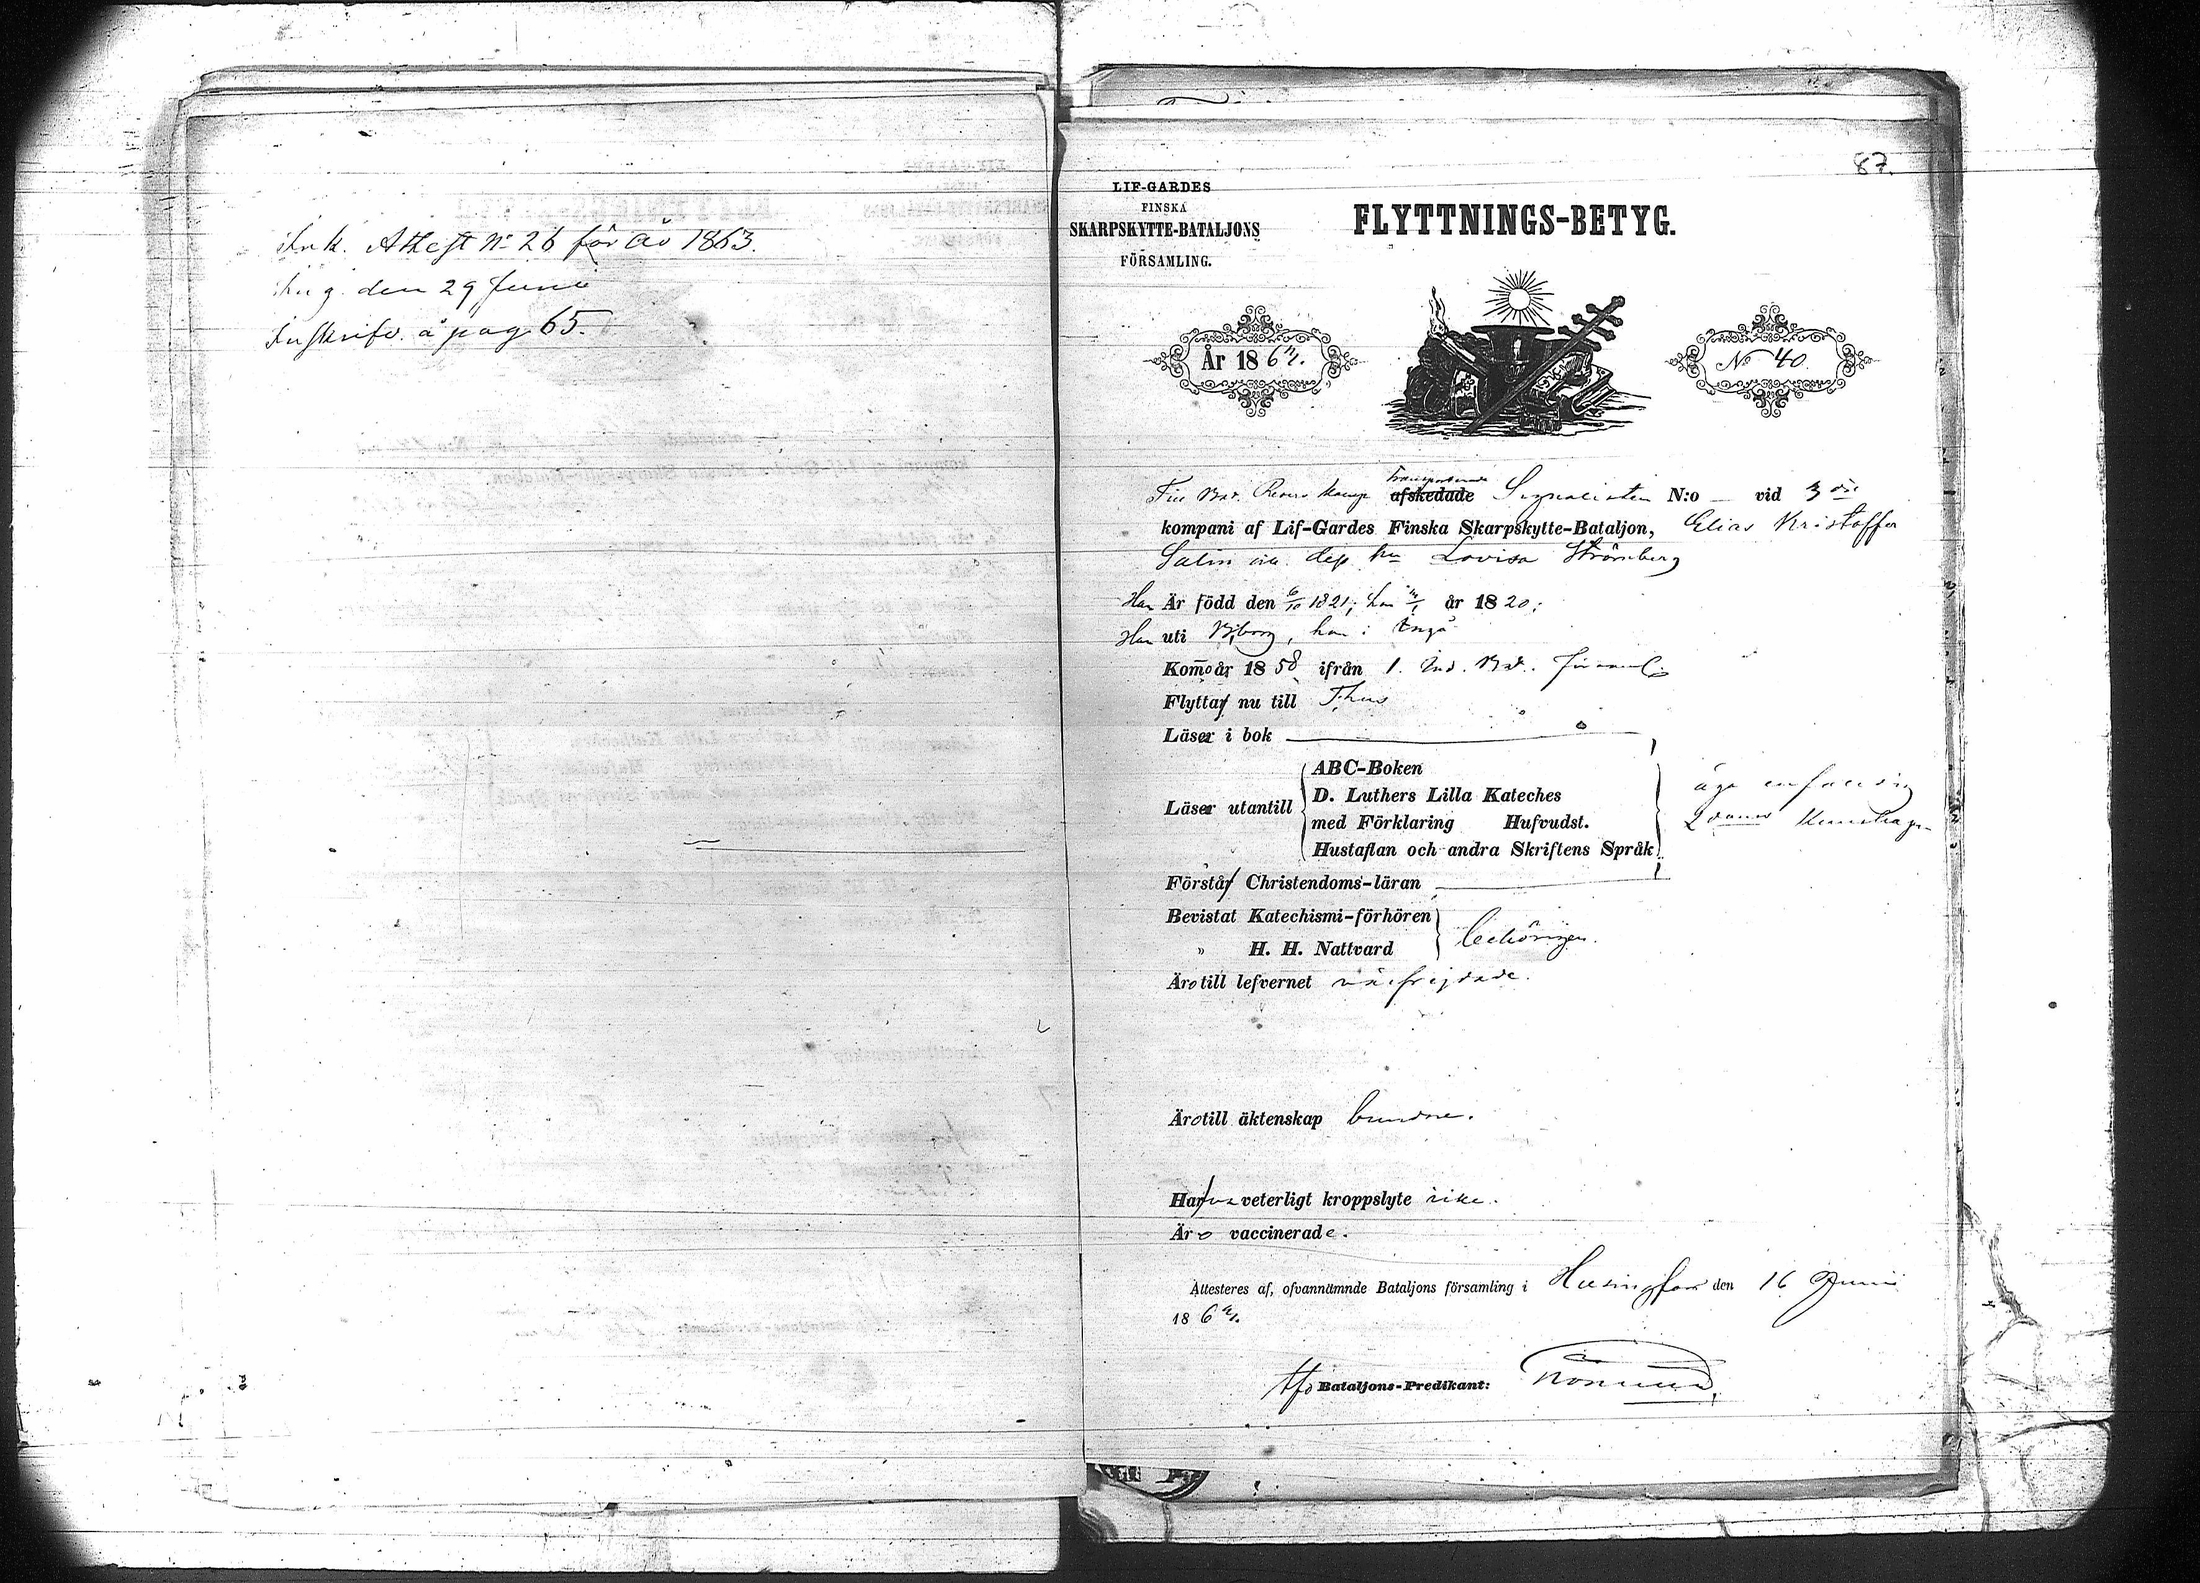 Ink. Attest No 26 för år 1863.
den 29 Juni
Inskrifv. å pag. 65.
87.
LIF-GARDES
FINSKA
SKARPSKYTTE-BATALJONS
FÖRSAMLING.
FLYTTNINGS-BETYG.
År 186
No 40.
Till Res. Komp. afskedade Signalisten N:o — vid 3
kompani af Lif-Gardes Finska Skarpskytte-Bataljon, Elias Kristoffer
Salin Lovisa Strömberg
Han Är född den 6/10 1821; hon år 1820;
Han uti Wiborg, hon i Ingå
Komo år 1858 ifrån 1. Ind. Bat. Församl.
Flytta nu till
Läsa i bok
Läsa utantill
ABC-Boken
D. Luthers Lilla Kateches
med Förklaring Hufvudst.
Hustaflan och andra Skriftens Språk
äga enfaldig
kunskap
Förstå Christendoms-läran
Bevistat Katechismi-förhören
" H. H. Nattvard
behörigen.
Äro till lefvernet välfrejdade.
Äro till äktenskap bundne.
Hafva veterligt kroppslyte icke.
Äro vaccinerade.
Attesteres af, ofvannämnde Bataljons församling i Helsingfors den 16 Junii
186
Bataljons-Predikant: